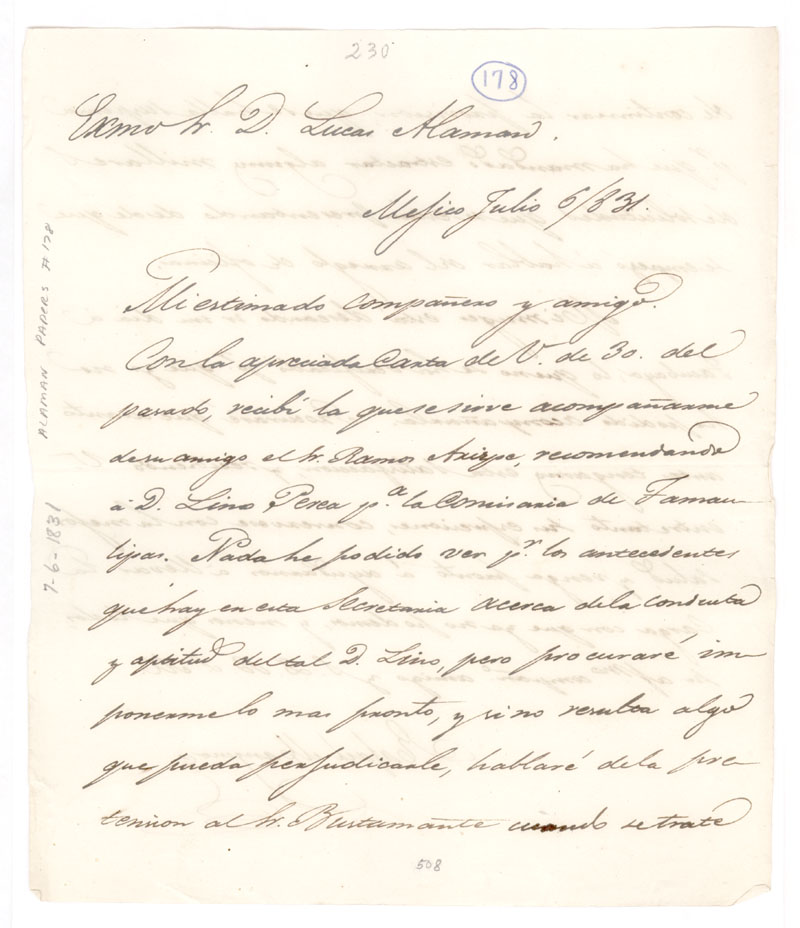 230
178
Exmo Sr. D. Lucas Alaman.
Mexico Julio 6/831.
Mi estimado compañero y amigo.
Con la apreciada Carta de V. de 30. del
pasado, recibí la que se sirve acompañarme
de su amigo el Sr. Ramos Arispe, recomendando
á D. Lino Perea pa. la Comisaria de Tamau-
lipas. Nada he podido ver pr. los antecedentes
que hay en esta Secretaria acerca de la conducta
y aptitud del tal D. Lino, pero procuraré im-
ponerme lo mas pronto, y si no resulta algo
que pueda perjudicarle, hablaré de la pre-
tension al Sr. Bustamante cuando se trate
508
ALAMAN PAPERS # 178
7-6-1831